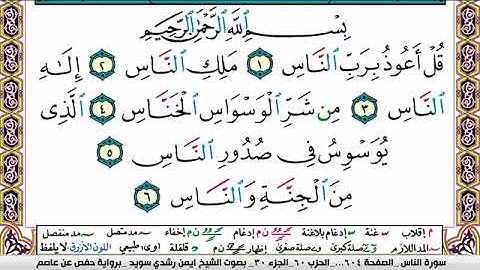 بِسْمِ اللَّهِ الرَّحْمَٰنِ الرَّحِيمِ
قُلْ أَعُوذُ بِرَبِّ النَّاسِ ١ مَلِكِ النَّاسِ ٢ إِلَٰهِ
النَّاسِ ٣ مِن شَرِّ الْوَسْوَاسِ الْخَنَّاسِ ٤ الَّذِى
يُوَسْوِسُ فِى صُدُورِ النَّاسِ ٥
مِنَ الْجِنَّةِ وَالنَّاسِ ٦
م إقلاب غنة إدغام بلاغنة ن م إدغام إخفاء مد متصل مد منفصل
المد اللازم صلة كبرى صلة صغرى إظهار ن م قلقلة طبيعي اللون الأزرق لا يلفظ
سورة الناس_ الصفحة ٦٠٤_ الحزب ٦٠_ الجزء ٣٠_ بصوت الشيخ ايمن رشدي سويد _ برواية حفص عن عاصم